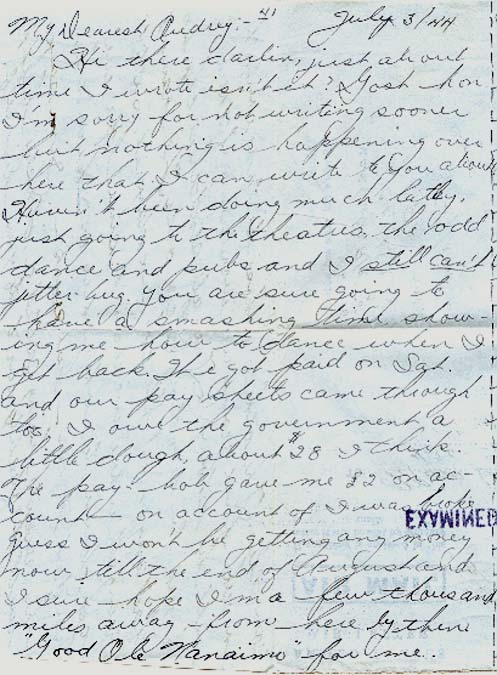 My Dearest Audrey:- 41 July 3/44
Hi there darlin, just about
time I wrote isn't it? Gosh hon
I'm sorry for not writing sooner
but nothing is happening over
here that I can write to you about
Haven't been doing much lately,
just going to the theatres, the odd
dance and pubs and I still can't
jitter bug. You are sure going to
have a smashing time show-
ing me how to dance when I
get back. We got paid on Sat.
and our pay sheets came through
too. I owe the government a
little dough, about $28 I think.
The pay-bob gave me £2 on ac-
count - on account of I was broke
EXAMINED
Guess I won't be getting any money
now till the end of August and
I sure hope I'm a few thousand
miles away from here by then
"Good Ole Nanaimo" for me..
AIR MAIL